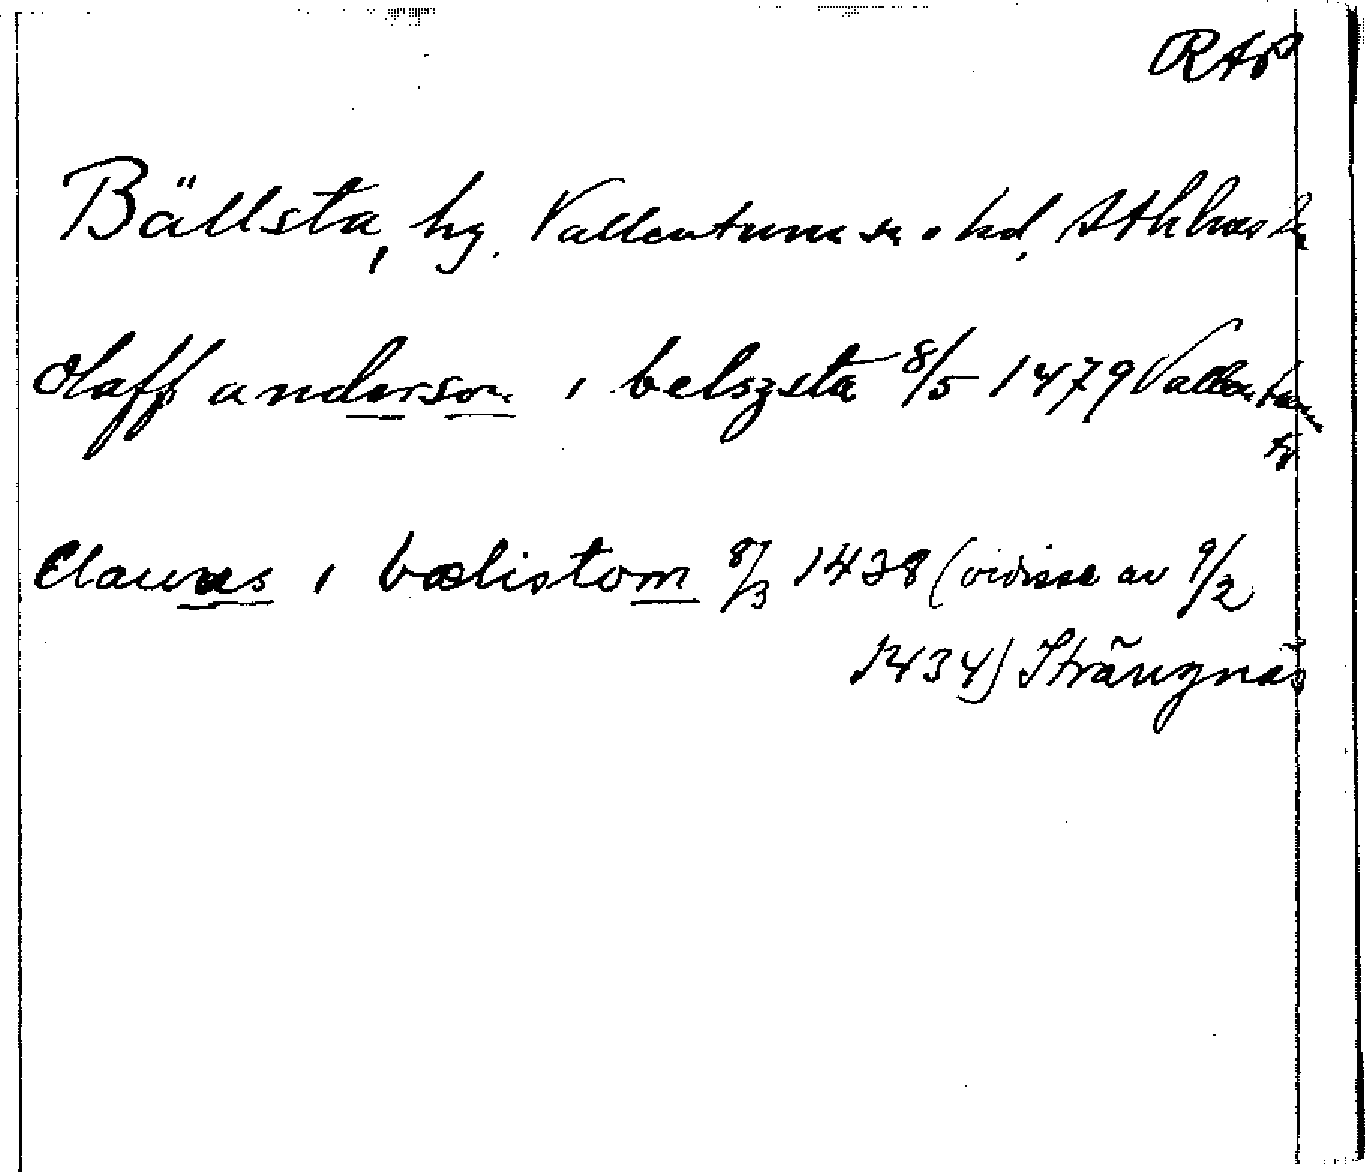 RAP
Bällsta, hg. Vallentuna sn o hd, Sthlms
Olaff anderson i belzsta 8/5 1479 Vallentuna
Clauus i bœlistom 8/3 1438 (vidisse av 9/2
1434) Strängnäs